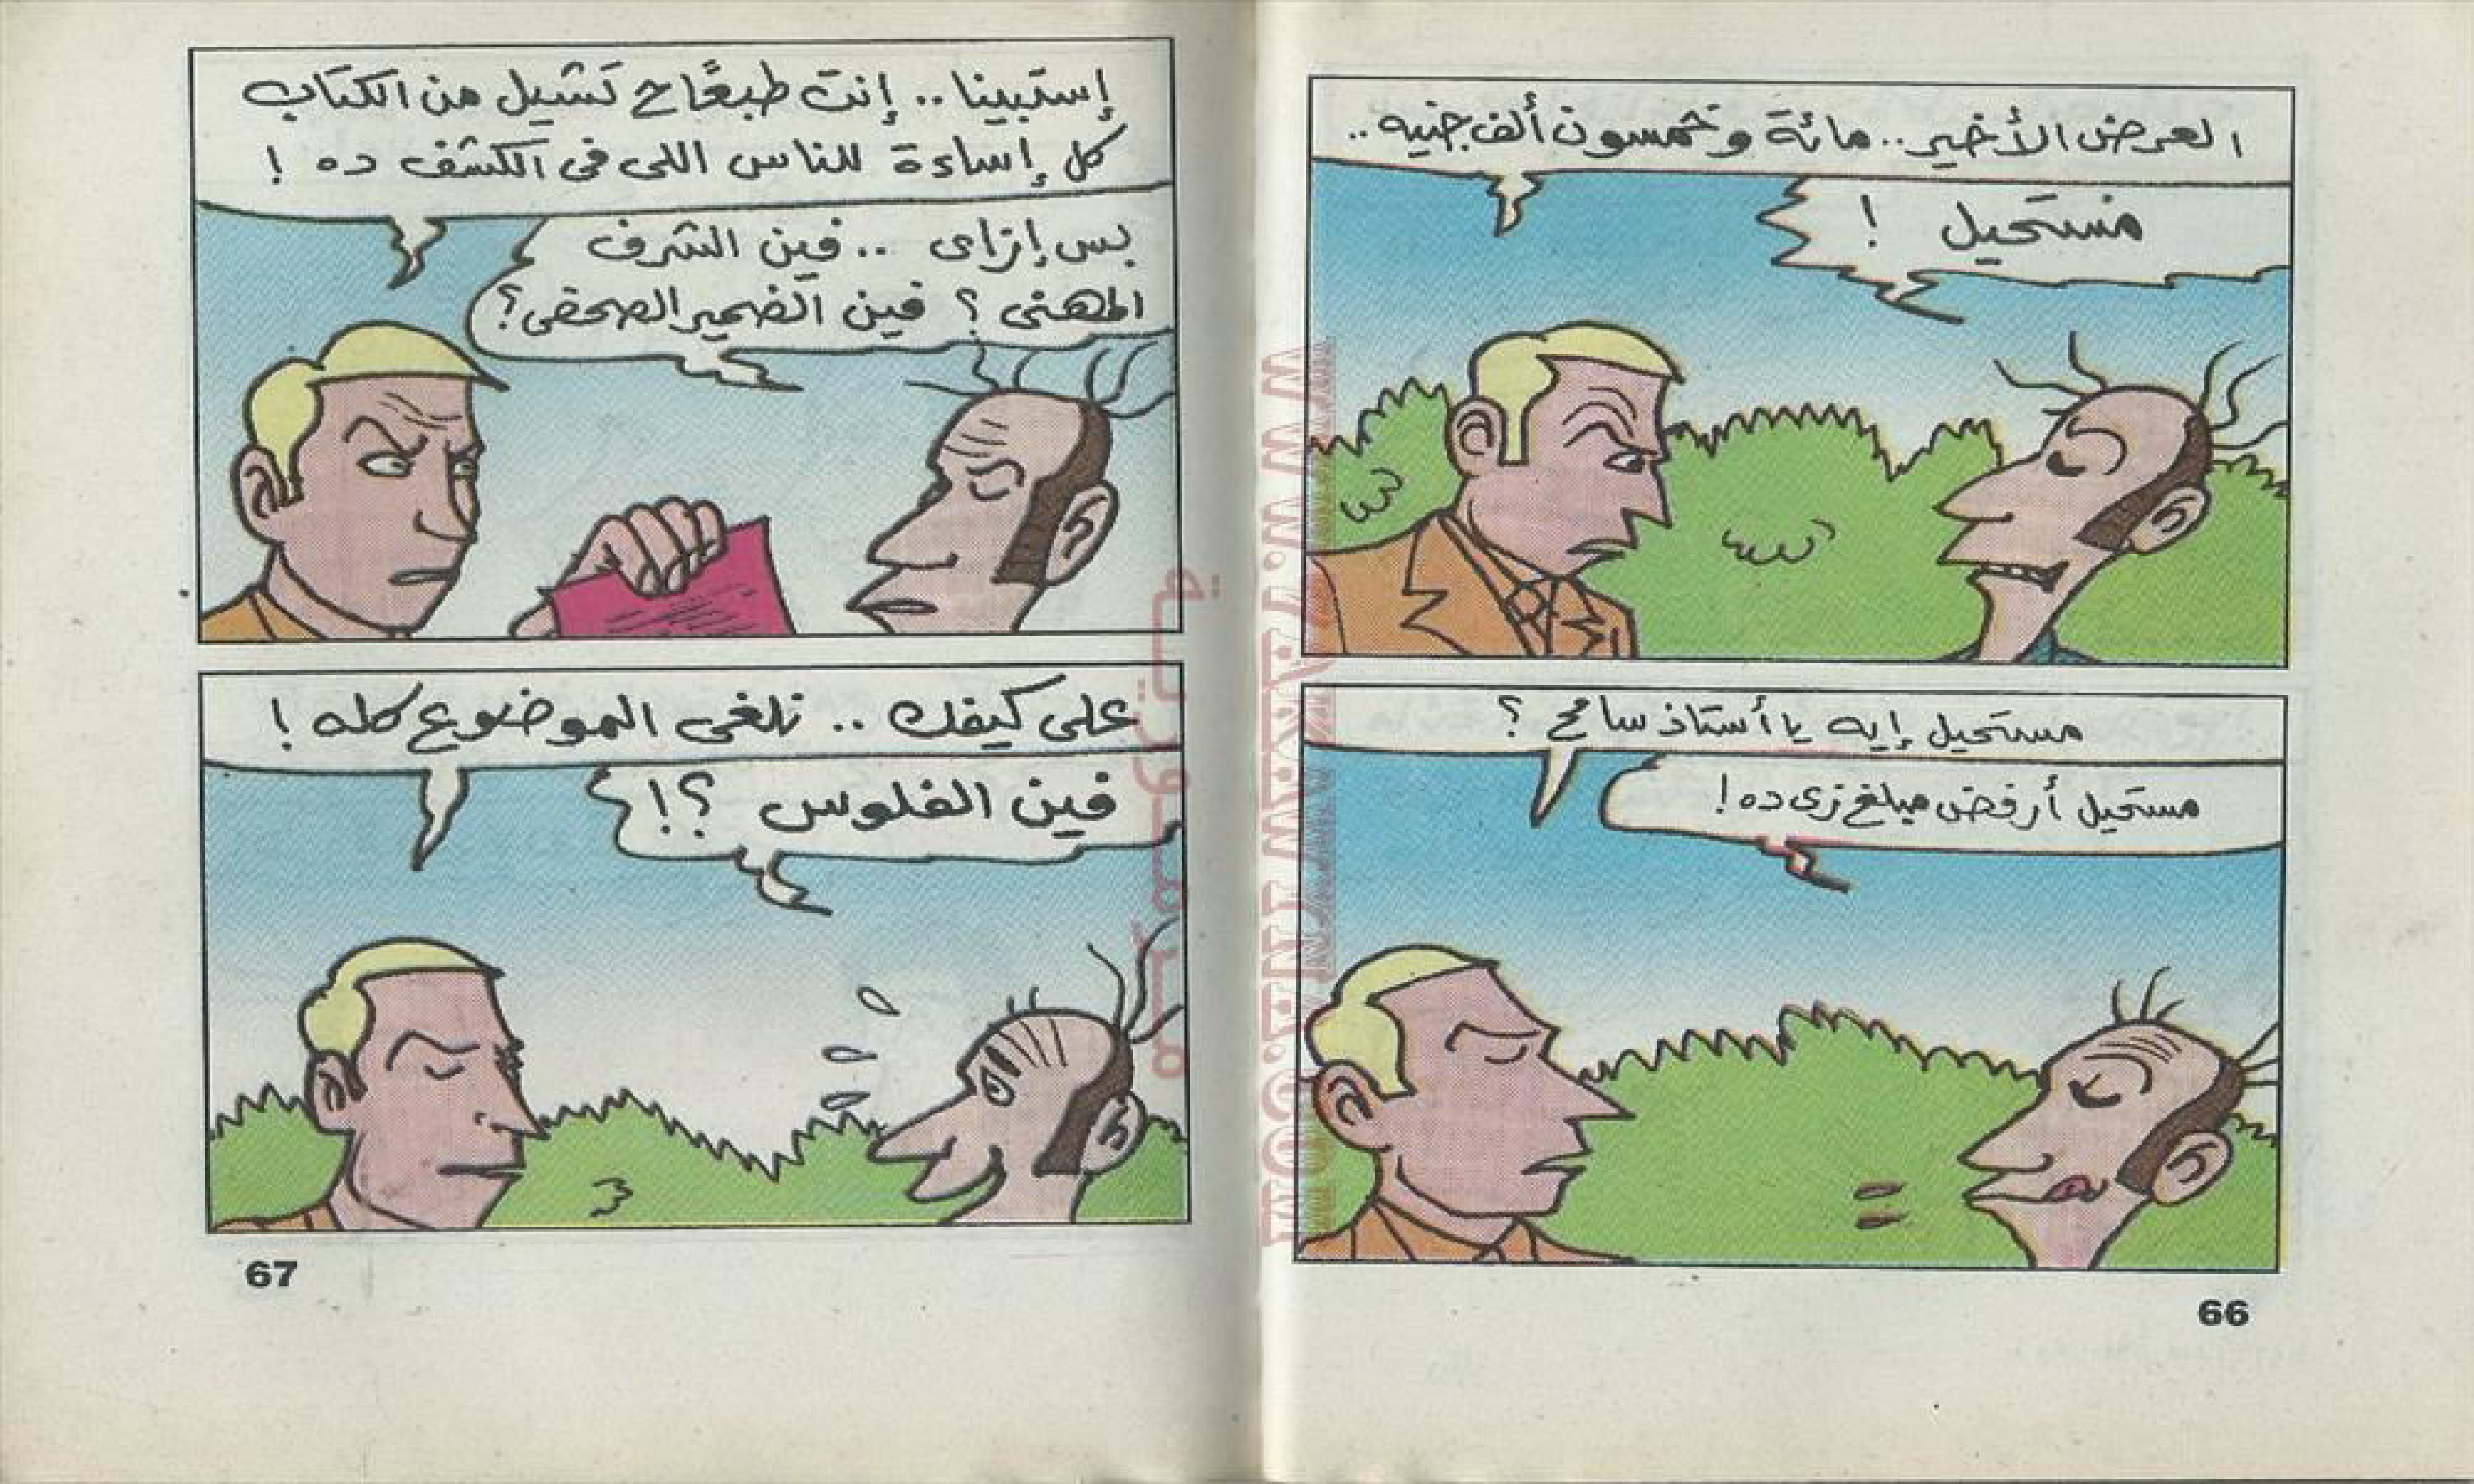 العرض الأخير.. مائة وخمسون ألف جنيه..
مستحيل !
مستحيل إيه يا أستاذ سامح ؟
مستحيل أرفض مبلغ زى ده !
66
إستبينا .. إنت طبعًا ح تشيل من الكتاب
كل إساءة للناس اللى فى الكشف ده !
بس إزاى .. فين الشرف
المهنى ؟ فين الضمير الصحفى ؟
على كيفك .. نلغى الموضوع كله !
فين الفلوس ؟!
67